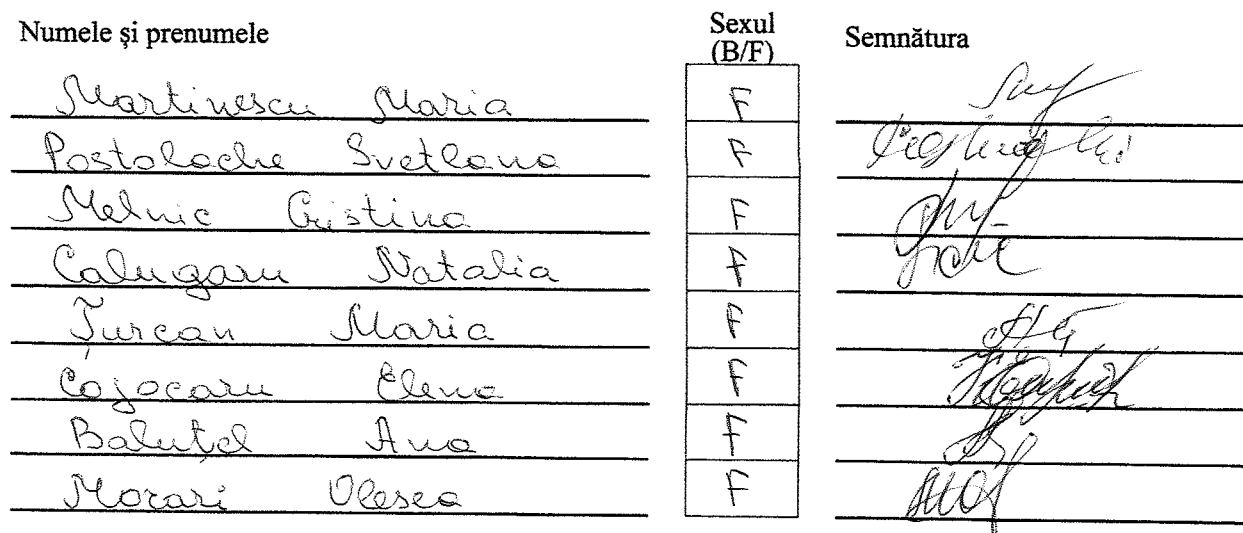 Numele și prenumele Sexul (B/F) Semnătura
Martinescu Maria F
Postolache Svetlana F
Melnic Cristina F
Calugaru Natalia F
Țurcan Maria F
Cojocaru Elena F
Baluțel Ana F
Morari Olesea F